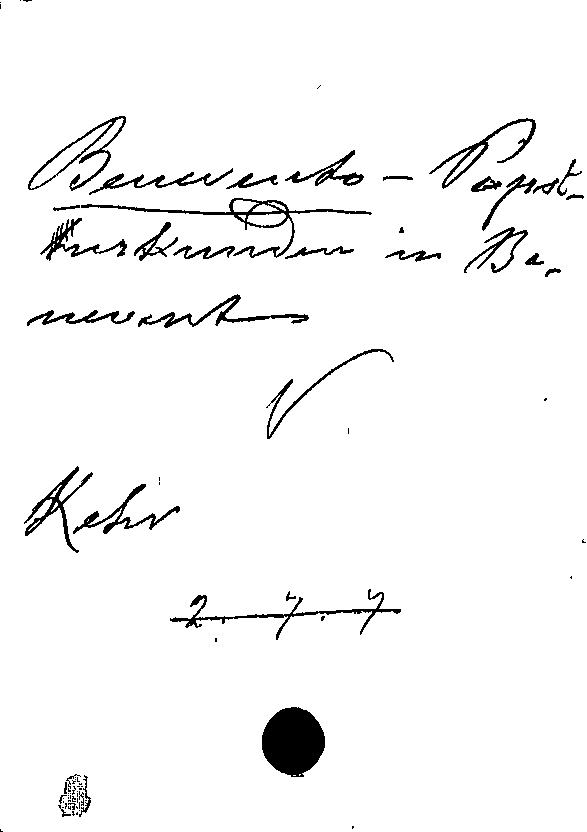 Benevento - Papst-
urkunden in Be-
nevent
Kehr
2. 7. 7